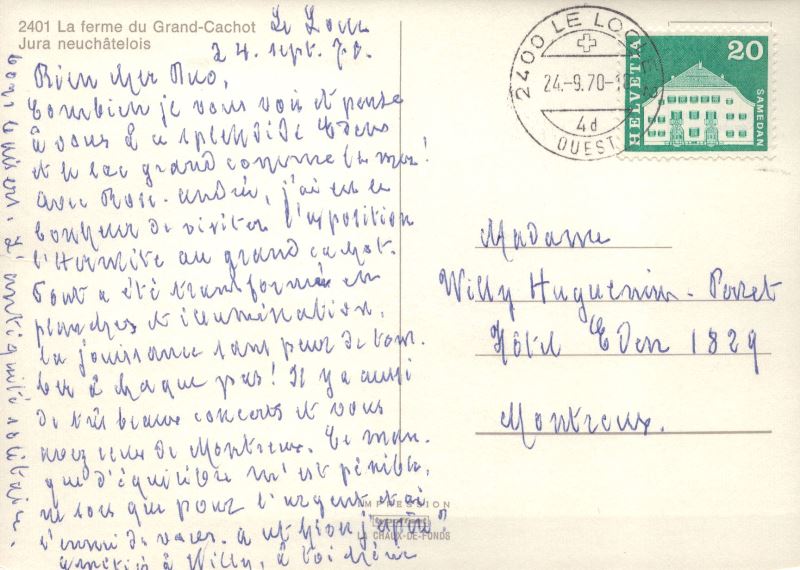 2401 La ferme du Grand-Cachot
Jura neuchâtelois
Le Locle
24. sept. 70.
Bien cher Duo,
Combien je vous vois et pense
à vous à ce splendide Eden
et le lac grand comme la mer!
avec Rose-andrée, j'ai eu le
bonheur de visiter l'exposition
l'Hermite au grand cachot.
Tout a été transformé en
planches et illumination.
la jouissance sans peur de tom-
ber à chaque pas! Il y a aussi
de très beaux concerts et vous
avez ceux de Montreux. Le man-
que d'équilibre m'est pénible,
ne sors que pour l'urgent et ai
l'ennui de
amitiés à Willy, à toi
bons baisers. L'antiquité solitaire.
IMPRESSION
LA CHAUX-DE-FONDS
2400 LE LOCLE
24.-9.70-18
4d
OUEST
HELVETIA
20
SAMEDAN
Madame
Willy Huguenin-Perret
Hôtel Eden 1829
Montreux.